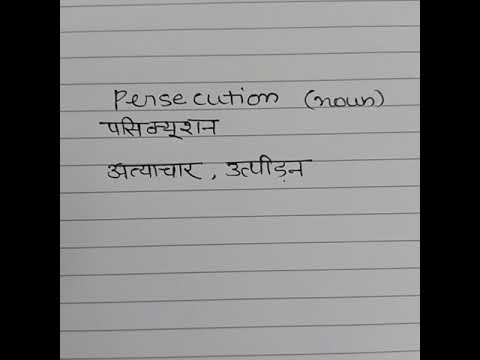 Persecution (noun)
पसिक्यूशन
अत्याचार, उत्पीड़न